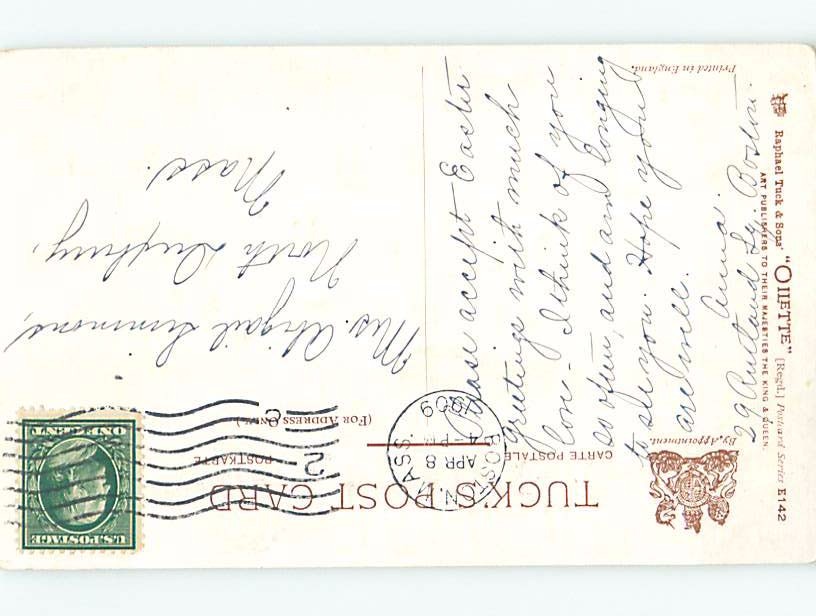 TUCK'S POST CARD
CARTE POSTALE
POSTKARTE
(FOR ADDRESS ONLY.)
By Appointment.
Raphael Tuck & Sons' "OILETTE" [Regd.] Postcard Series E142
ART PUBLISHERS TO THEIR MAJESTIES THE KING & QUEEN.
Printed in England.
BOSTON, MASS.
APR 8
4-PM
1909
2
C
U.S. POSTAGE
ONE CENT
Please accept Easter
greetings with much
love. I think of you
so often, and am longing
to see you. Hope you
are well.
Anna.
29 Rutland Sq. Boston.
Mrs. Abigail Simmons,
North Duxbury,
Mass.